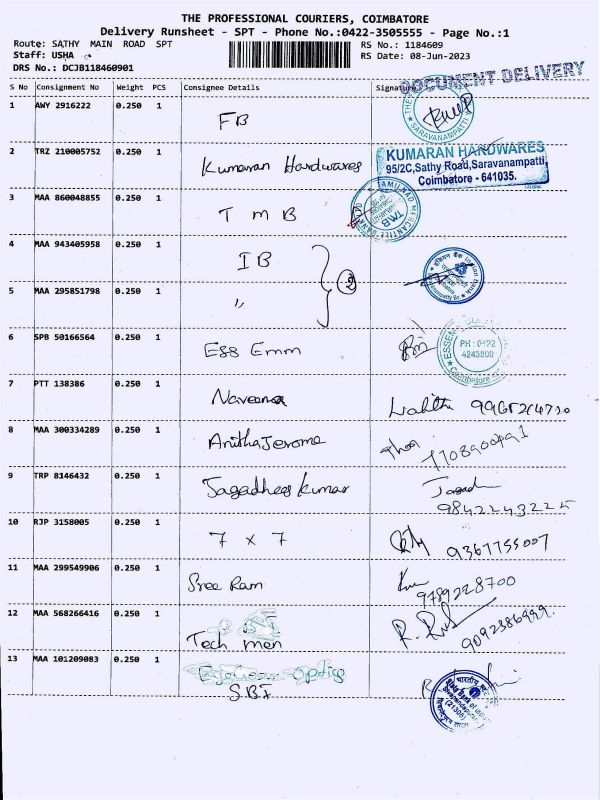 THE PROFESSIONAL COURIERS, COIMBATORE
Delivery Runsheet - SPT - Phone No.:0422-3505555 - Page No.:1
Route: SATHY MAIN ROAD SPT
Staff: USHA
DRS No.: DCJB118460901
RS No.: 1184609
RS Date: 08-Jun-2023
DOCUMENT DELIVERY
S No Consignment No Weight PCS Consignee Details Signature
1 AWY 2916222 0.250 1 FB
SARAVANAMPATTI
2 TRZ 210005752 0.250 1 Kumaran Hardwares
KUMARAN HARDWARES
95/2C,Sathy Road,Saravanampatti,
Coimbatore - 641035.
3 MAA 860048855 0.250 1 TMB
TAMILNAD MERCANTILE BANK
TMB
4 MAA 943405958 0.250 1 IB
2
5 MAA 295851798 0.250 1 "
6 SPB 50166564 0.250 1 ESS Emm
PH : 0422
4243800
Coimbatore
7 PTT 138386 0.250 1 Naveena
8 MAA 300334289 0.250 1 Anitha Jerome
9 TRP 8146432 0.250 1 Jagadhees Kumar
9842243225
10 RJP 3158005 0.250 1 7 x 7
9367755007
11 MAA 299549906 0.250 1 Sree Ram
9789228700
12 MAA 568266416 0.250 1 Tech men
9092386999
13 MAA 101209083 0.250 1
SBI